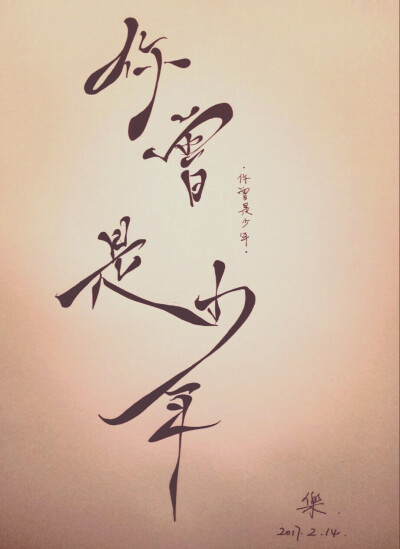 你曾是少年
·你曾是少年·
樂.
2017.2.14.